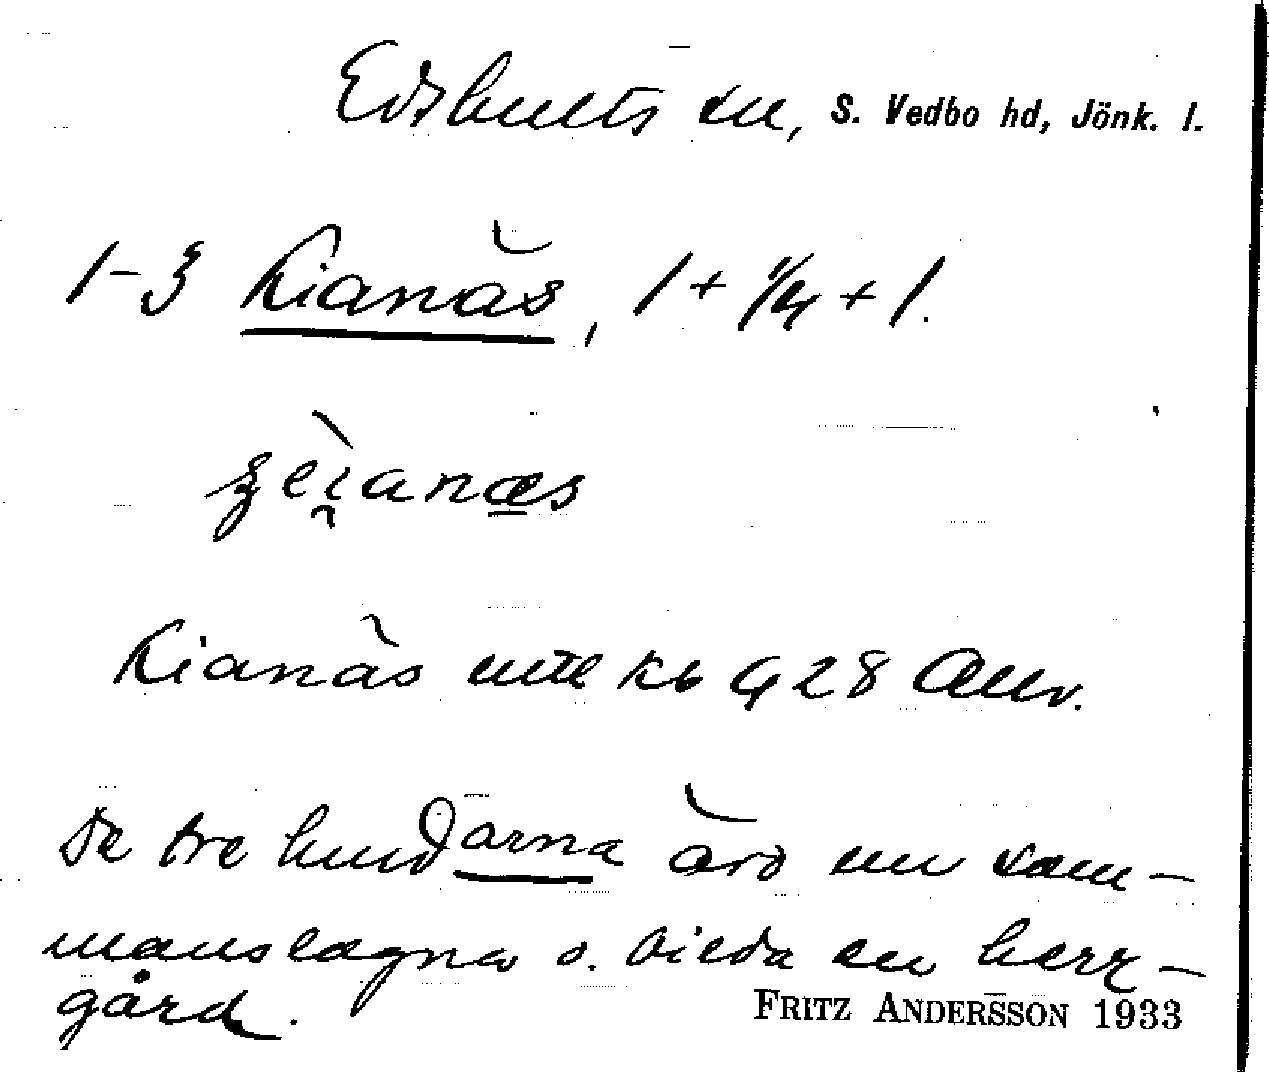 Edshults sn, S. Vedbo hd, Jönk. l.
1-3 Kianäs, 1 + 1/4 + 1.
Kianäs intill kb 428 Allv.
De tre hundarna äro nu sam-
manslagna o. bilda en herr-
gård.
FRITZ ANDERSSON 1933